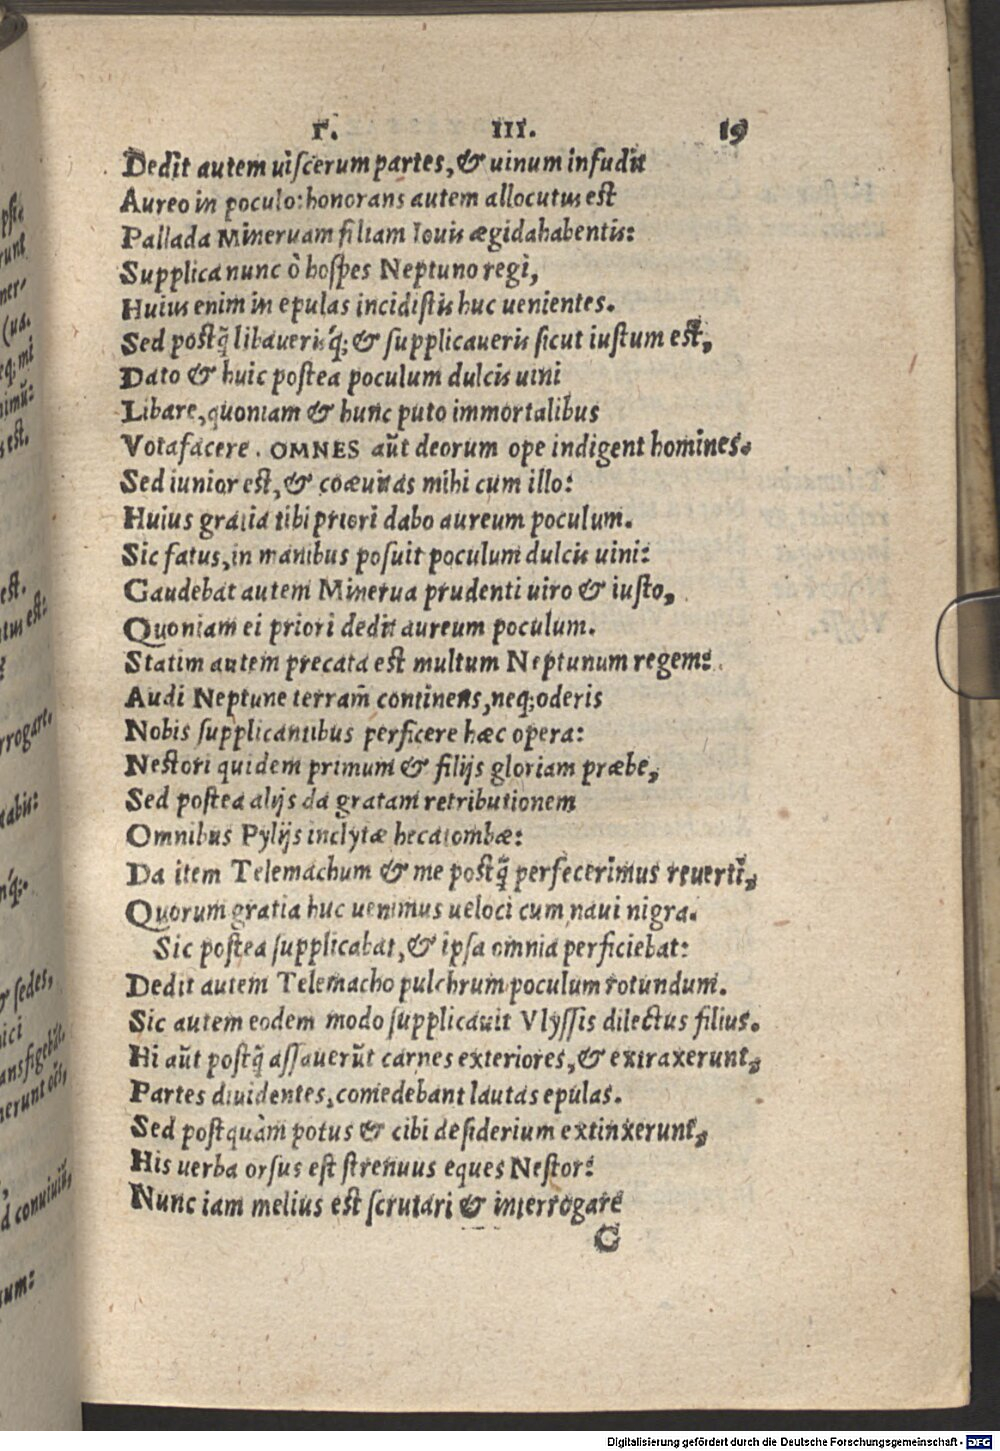 Γ. III. 19
Dedit autem uiscerum partes, & uinum infudit
Aureo in poculo: honorans autem allocutus est
Pallada Mineruam filiam Iouis ægida habentis:
Supplica nunc ò hospes Neptuno regi,
Huius enim in epulas incidistis huc uenientes.
Sed postq̃ libaueris'q́; & supplicaueris sicut iustum est,
Dato & huic postea poculum dulcis uini
Libare, quoniam & hunc puto immortalibus
Vota facere. OMNES aũt deorum ope indigent homines.
Sed iunior est, & coæuitas mihi cum illo:
Huius gratia tibi priori dabo aureum poculum.
Sic fatus, in manibus posuit poculum dulcis uini:
Gaudebat autem Minerua prudenti uiro & iusto,
Quoniam ei priori dedit aureum poculum.
Statim autem precata est multum Neptunum regem:
Audi Neptune terram̃ continens, neq; oderis
Nobis supplicantibus perficere hæc opera:
Nestori quidem primum & filijs gloriam præbe,
Sed postea alijs da gratam retributionem
Omnibus Pylijs inclytæ hecatombæ:
Da item Telemachum & me postq̃ perfecerimus reuerti,
Quorum gratia huc uenimus ueloci cum naui nigra.
Sic postea supplicabat, & ipsa omnia perficiebat:
Dedit autem Telemacho pulchrum poculum rotundum.
Sic autem eodem modo supplicauit Vlyssis dilectus filius.
Hi aũt postq̃ assauerũt carnes exteriores, & extraxerunt,
Partes diuidentes, comedebant lautas epulas.
Sed postquàm potus & cibi desiderium extinxerunt,
His uerba orsus est strenuus eques Nestor:
Nunc iam melius est scrutari & interrogare
C
Digitalisierung gefördert durch die Deutsche Forschungsgemeinschaft - DFG